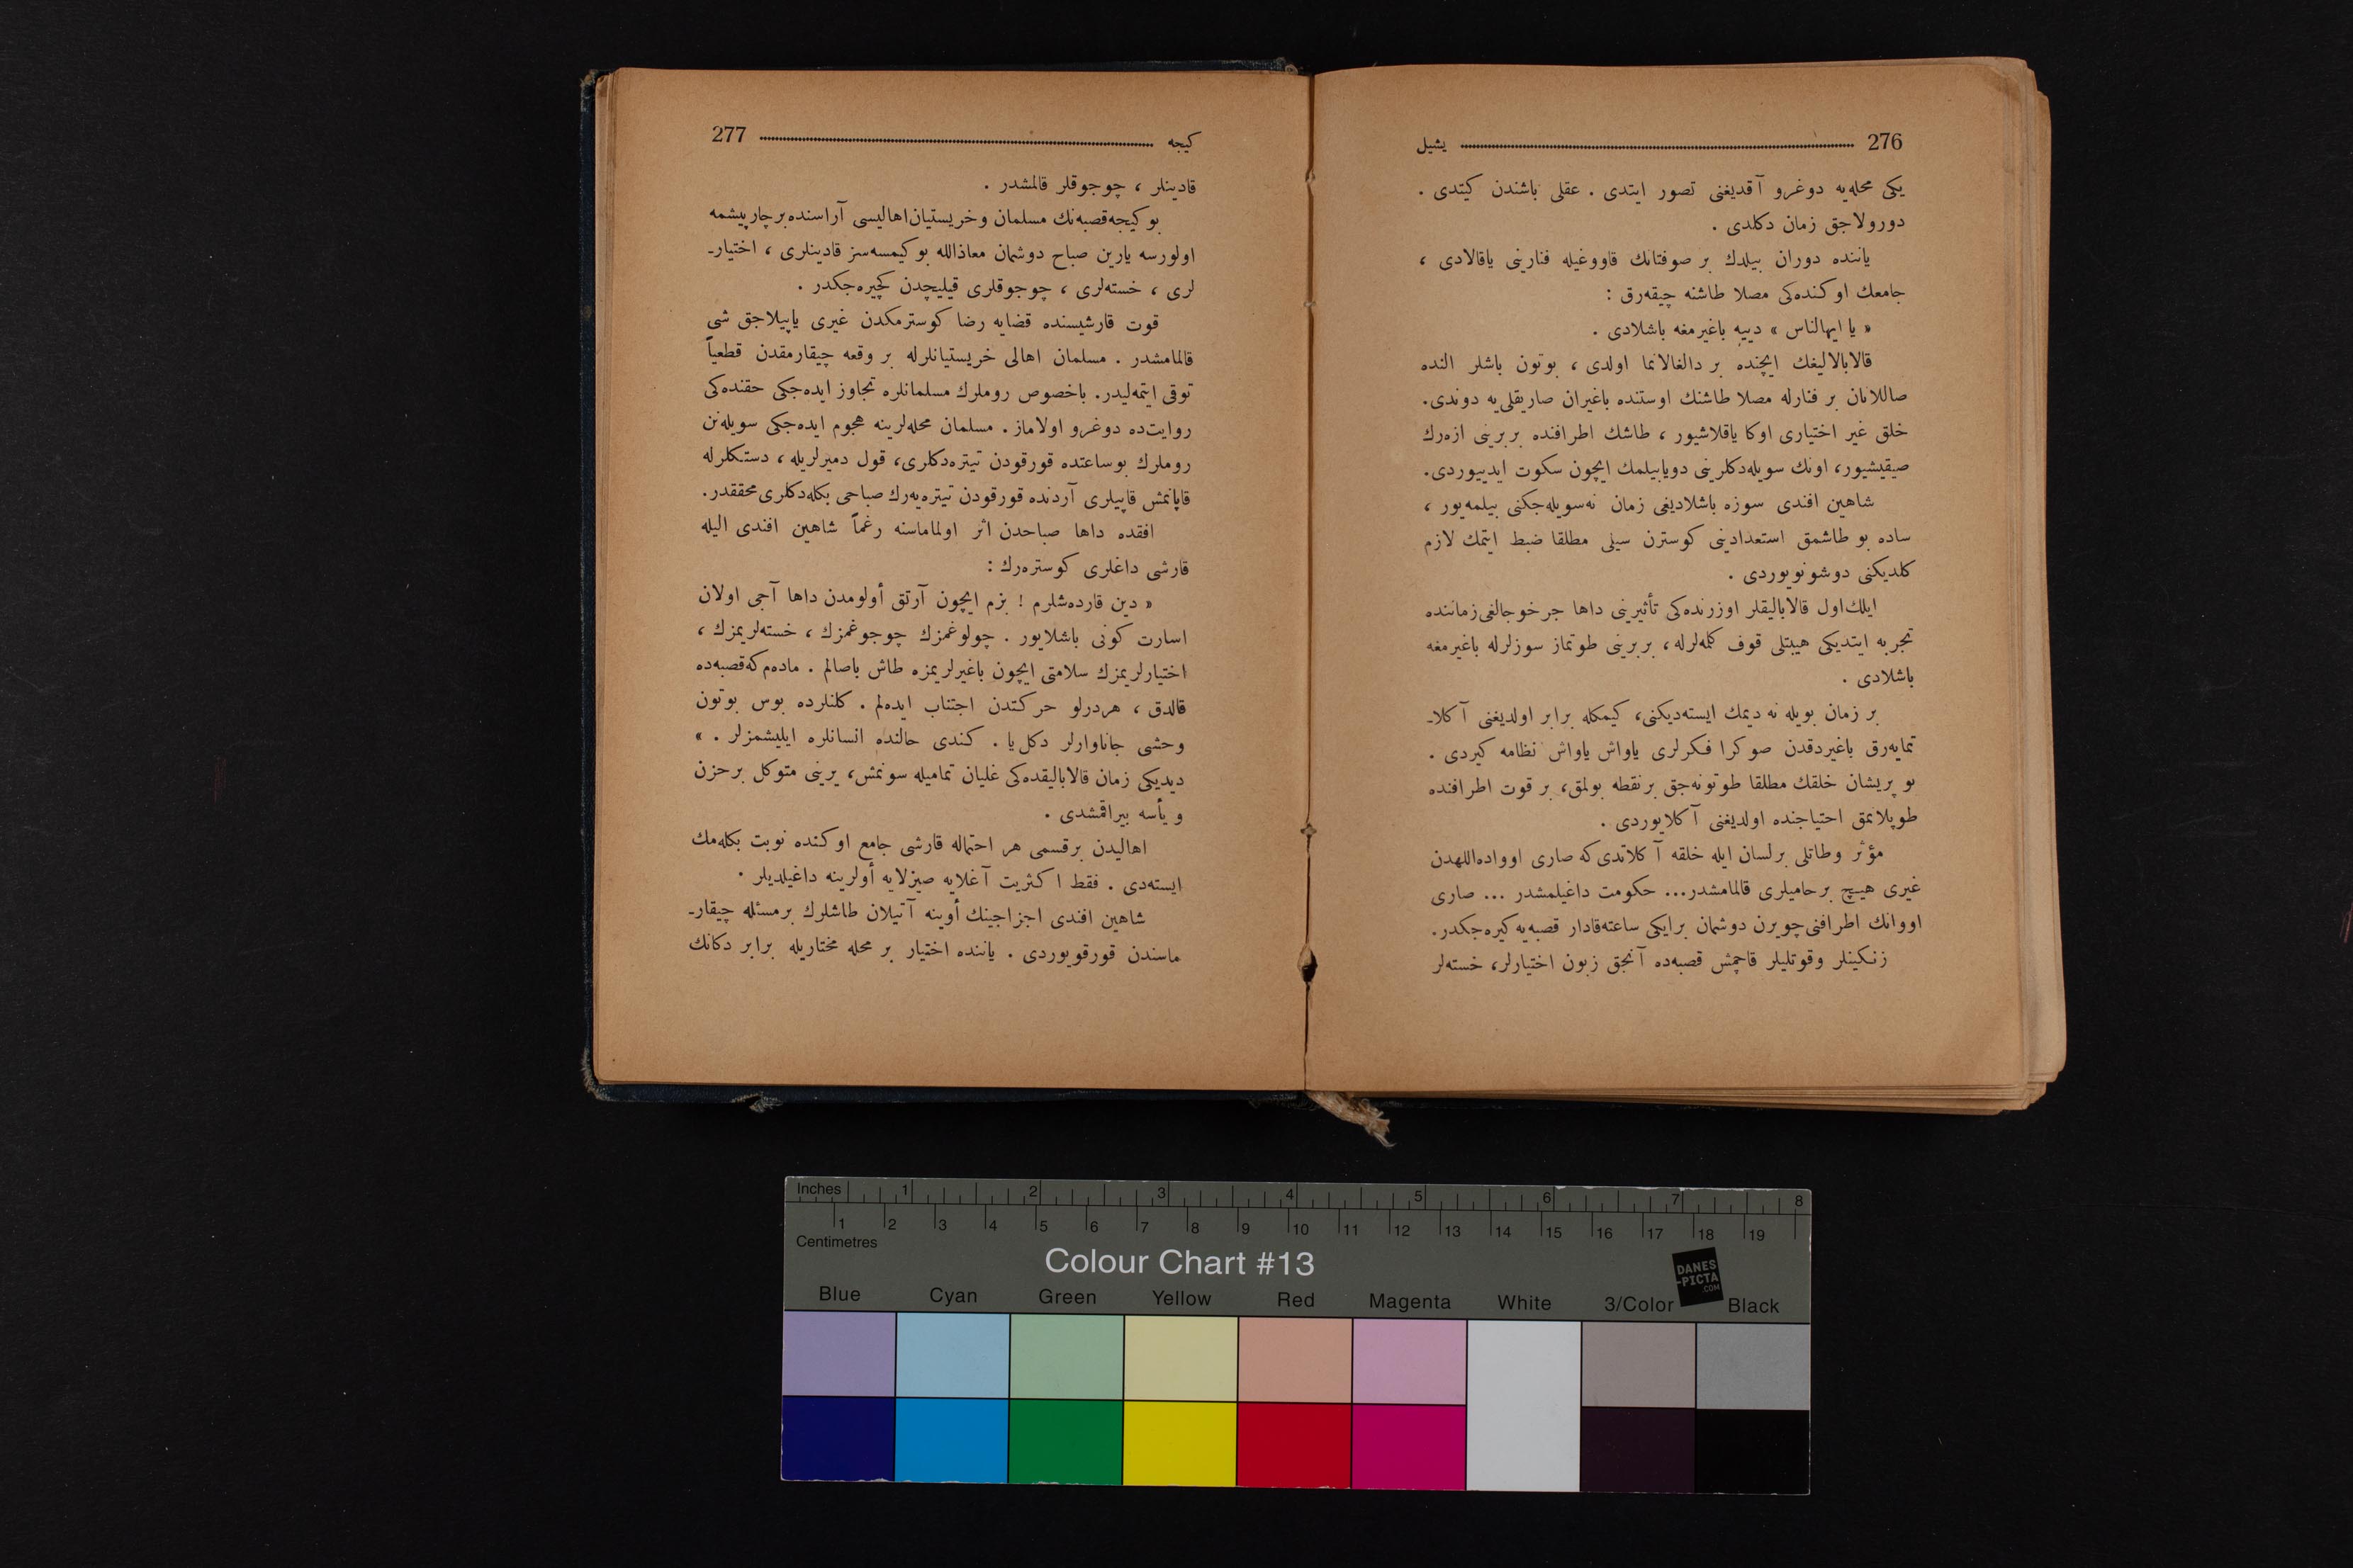 276 يشيل
يكى محله‌يه دوغرو آقديغنى تصور ايتدى . عقلى باشندن كيتدى .
دورولاجق زمان دكلدى .
ياننده دوران بيلدك بر صوفتانك قاووغيله فنارينى ياقالادى ،
جامعك اوكنده‌كى مصلا طاشنه چيقه‌رق :
« يا ايهاالناس » دييه باغيرمغه باشلادى .
قالابالاليغك ايچنده بر دالغالانما اولدى ، بوتون باشلر النده
صاللانان بر فنارله مصلا طاشنك اوستنده باغيران صاريقلى‌يه دوندى.
خلق غير اختيارى اوكا ياقلاشيور ، طاشك اطرافنده بربرينى ازه‌رك
صيقيشيور، اونك سويله‌دكلرينى دويابيلمك ايچون سكوت ايدييوردى.
شاهين افندى سوزه باشلاديغى زمان نه‌سويله‌جكنى بيلمه‌يور ،
ساده بو طاشمق استعدادينى كوسترن سيلى مطلقا ضبط ايتمك لازم
كلديكنى دوشونويوردى .
ايلك‌اول قالاباليقلر اوزرنده‌كى تأثيرينى داها جرخوجالغى‌زماننده
تجربه ايتديكى هيبتلى قوف كلمه‌لرله، بربرينى طوتماز سوزلرله باغيرمغه
باشلادى .
بر زمان بويله نه ديمك ايسته‌ديكنى، كيمكله برابر اولديغنى آكلا-
تمايه‌رق باغيردقدن صوكرا فكرلرى ياواش ياواش نظامه كيردى .
بو پريشان خلقك مطلقا طوتونه‌جق برنقطه بولمق، بر قوت اطرافنده
طوپلانمق احتياجنده اولديغنى آكلايوردى .
مؤثر وطاتلى برلسان ايله خلقه آكلاتدى‌كه صارى اوواده‌اللهدن
غيرى هيچ برحاميلرى قالمامشدر... حكومت داغيلمشدر ... صارى
اووانك اطرافنى‌چويرن دوشمان برايكى ساعته‌قادار قصبه‌يه‌كيره‌جكدر.
زنكينلر وقوتليلر قاچمش قصبه‌ده آنجق زبون اختيارلر، خسته‌لر
كيجه 277
قادينلر ، چوجوقلر قالمشدر .
بوكيجه‌قصبه‌نك مسلمان وخريستيان‌اهاليسى آراسنده‌برچارپيشمه
اولورسه يارين صباح دوشمان معاذالله بوكيمسه‌سز قادينلرى ، اختيار-
لرى ، خسته‌لرى ، چوجوقلرى قيليچدن كچيره‌جكدر .
قوت قارشيسنده قضايه رضا كوسترمكدن غيرى ياپيلاجق شى
قالمامشدر . مسلمان اهالى خريستيانلرله بر وقعه چيقارمقدن قطعياً
توقى ايتمه‌ليدر. باخصوص روملرك مسلمانلره تجاوز ايده‌جكى حقنده‌كى
روايت‌ده دوغرو اولاماز . مسلمان محله‌لرينه هجوم ايده‌جكى سويله‌نن
روملرك بوساعتده قورقودن تيتره‌دكلرى، قول دميرلريله ، دستكلرله
قاپانمش قاپيلرى آردنده قورقودن تيتره‌يه‌رك صباحى بكله‌دكلرى‌محققدر.
افقده داها صباحدن اثر اولماماسنه رغماً شاهين افندى اليله
قارشى داغلرى كوستره‌رك :
« دين قارده‌شلرم ! بزم ايچون آرتق أولومدن داها آجى اولان
اسارت كونى باشلايور . چولوغمزك چوجوغمزك ، خسته‌لريمزك ،
اختيارلريمزك سلامتى ايچون باغيرلريمزه طاش باصالم . ماده‌م‌كه‌قصبه‌ده
قالدق ، هردرلو حركتدن اجتناب ايده‌لم . كلنلرده بوس بوتون
وحشى جاناوارلر دكل‌يا . كندى حالنده انسانلره ايليشمزلر . »
ديديكى زمان قالاباليقده‌كى غليان تماميله سونمش، يرينى متوكل برحزن
و يأسه بيراقمشدى .
اهاليدن برقسمى هر احتماله قارشى جامع اوكنده نوبت بكله‌مك
ايسته‌دى . فقط اكثريت آغلايه صيزلايه أولرينه داغيلديلر .
شاهين افندى اجزاجينك أوينه آتيلان طاشلرك برمسئله چيقار-
ماسندن قورقويوردى . ياننده اختيار بر محله مختاريله برابر دكانك
Inches 1 2 3 4 5 6 7 8
1 2 3 4 5 6 7 8 9 10 11 12 13 14 15 16 17 18 19
Centimetres
Colour Chart #13
DANES
-PICTA
.COM
Blue Cyan Green Yellow Red Magenta White 3/Color Black